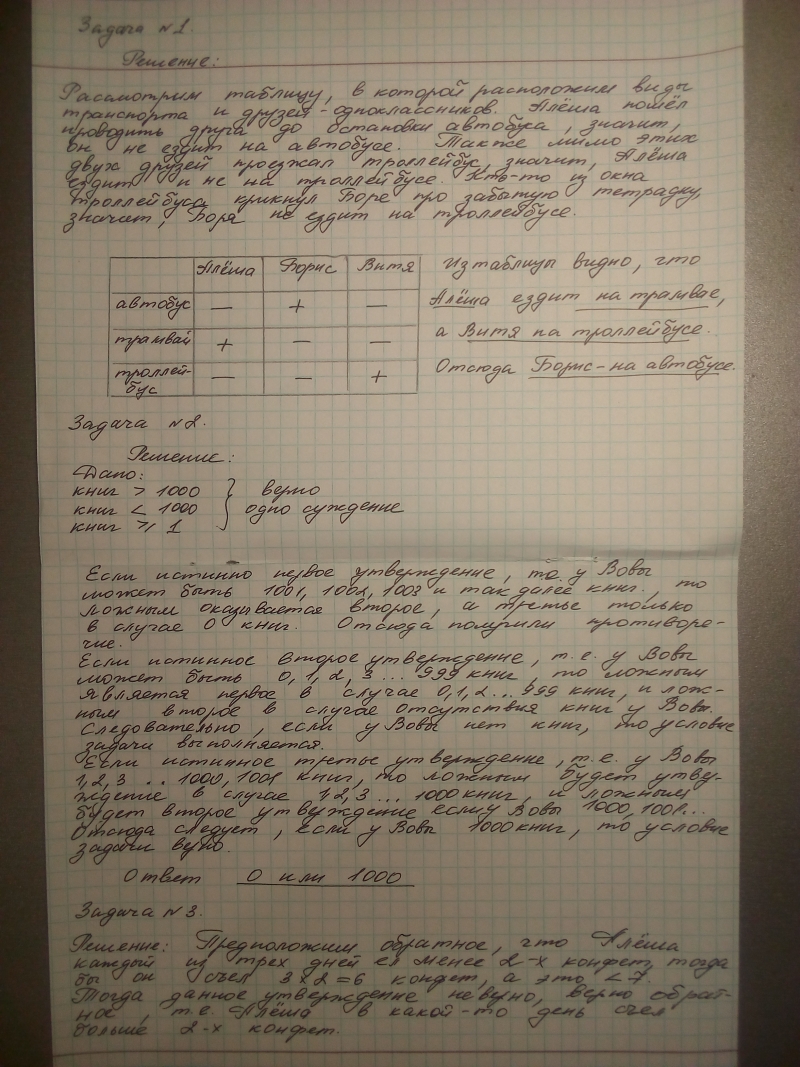 Задача №1.
Решение:
Рассмотрим таблицу, в которой расположим виды
транспорта и друзей-одноклассников. Алёша пошёл
проводить друга до остановки автобуса, значит,
он не ездит на автобусе. Также мимо этих
двух друзей проезжал троллейбус, значит, Алёша
ездит и не на троллейбусе. Кто-то из окна
троллейбуса крикнул Боре про забытую тетрадку,
значит, Боря не ездит на троллейбусе.
Алёша Борис Витя
автобус — + —
трамвай + — —
троллей-
бус — — +
Из таблицы видно, что
Алёша ездит на трамвае,
а Витя на троллейбусе.
Отсюда Борис - на автобусе.
Задача №2.
Решение:
Дано:
книг > 1000 } верно
книг < 1000 } одно суждение
книг ⩾ 1
Если истинно первое утверждение, то у Вовы
может быть 1001, 1002, 1003 и так далее книг., то
ложным оказывается второе, а третье только
в случае 0 книг. Отсюда получили противоре-
чие.
Если истинное второе утверждение, т.е. у Вовы
может быть 0, 1, 2, 3 ... 999 книг, то ложным
является первое в случае 0, 1, 2 ... 999 книг, и лож-
ным второе в случае отсутствия книг у Вовы.
Следовательно, если у Вовы нет книг, то условие
задачи выполняется.
Если истинное третье утверждение, т.е. у Вовы
1, 2, 3 .. 1000, 1001 книг, то ложным будет утве-
ждение в случае 1, 2, 3 ... 1000 книг, и ложным
будет второе утверждение если у Вовы 1000, 1001...
Отсюда следует, если у Вовы 1000 книг, то условие
задачи верно.
Ответ 0 или 1000
Задача №3.
Решение: Предположим обратное, что Алёша
каждый из трех дней ел менее 2-х конфет, тогда
бы он съел 3 х 2 = 6 конфет, а это < 7.
Тогда данное утверждение неверно, верно обрат-
ное, т.е. Алёша в какой-то день съел
больше 2-х конфет.